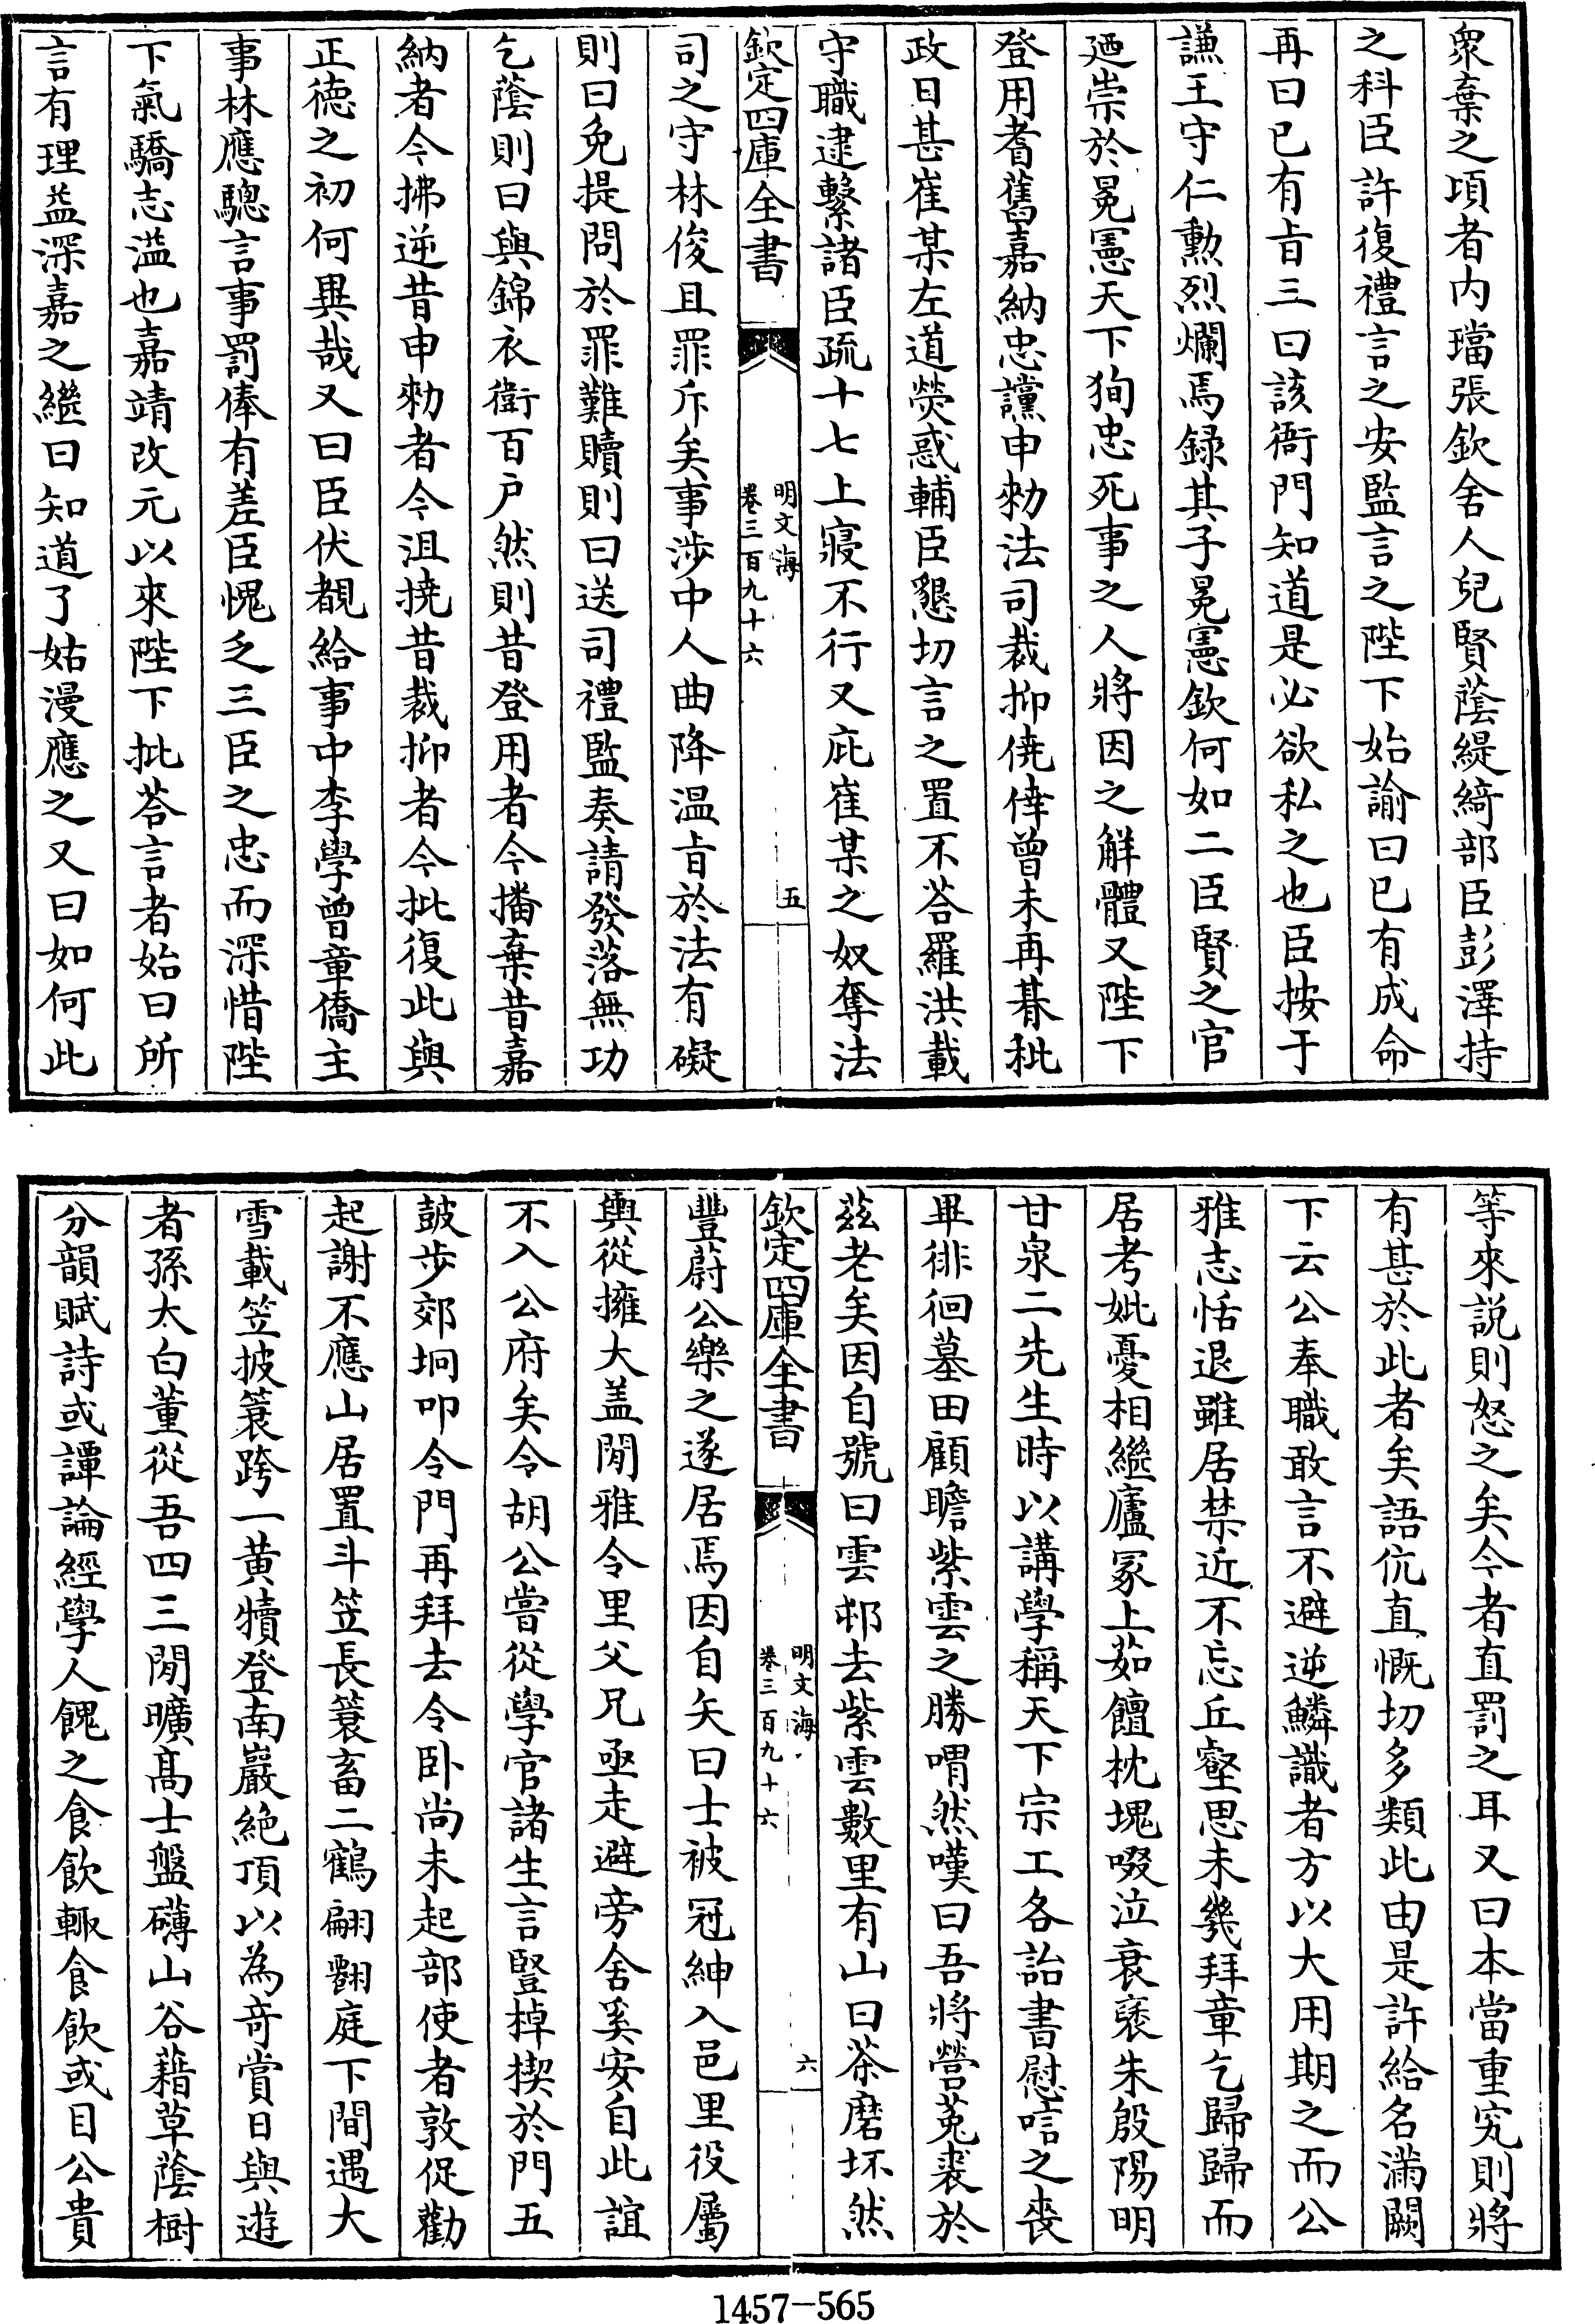 衆棄之項者内璫張欽舍人兒賢蔭緹綺部臣彭澤持
之科臣許復禮言之安監言之陛下始諭曰已有成命
再曰已有㫖三曰該衙門知道是必欲私之也臣按于
謙王守仁勲烈爛焉録其子冕憲欽何如二臣賢之官
廼崇於冕憲天下狥忠死事之人將因之解體又陛下
登用耆舊嘉納忠讜申勑法司裁抑僥倖曾未再朞秕
政日甚崔某左道熒惑輔臣懇切言之置不荅羅洪載
守職逮繫諸臣疏十七上寢不行又庇崔某之奴奪法
欽定四庫全書
明文海
卷三百九十六
五
司之守林俊且罪斥矣事渉中人曲降温㫖於法有礙
則曰免提問於罪難贖則曰送司禮監奏請發落無功
乞蔭則曰與錦衣衛百戸然則昔登用者今播棄昔嘉
納者今拂逆昔申勑者今沮撓昔裁抑者今批復此與
正徳之初何異哉又曰臣伏覩給事中李學曾章僑主
事林應驄言事罰俸有差臣愧乏三臣之忠而深惜陛
下氣驕志溢也嘉靖改元以來陛下批荅言者始曰所
言有理益深嘉之繼曰知道了姑漫應之又曰如何此
等來説則怒之矣今者直罰之耳又曰本當重究則將
有甚於此者矣語伉直慨切多類此由是許給名滿闕
下云公奉職敢言不避逆鱗識者方以大用期之而公
雅志恬退雖居禁近不忘丘壑思未幾拜章乞歸歸而
居考妣憂相繼廬冢上茹饘枕塊啜泣衰毀朱殷陽明
甘泉二先生時以講學稱天下宗工各詒書慰唁之喪
畢徘徊墓田顧瞻紫雲之勝喟然嘆曰吾將營菟裘於
兹老矣因自號曰雲邨去紫雲數里有山曰茶磨坏然
欽定四庫全書
明文海
卷三百九十六
六
豐蔚公樂之遂居焉因自矢曰士被冠紳入邑里役屬
輿從擁大盖閒雅令里父兄亟走避旁舍奚安自此誼
不入公府矣令胡公嘗從學官諸生言豎棹楔於門五
鼓步郊坰叩令門再拜去令卧尚未起部使者敦促勸
起謝不應山居置斗笠長蓑畜二鶴翩翾庭下間遇大
雪載笠披蓑跨一黄犢登南巖絶頂以為竒賞日與遊
者孫太白董從吾四三閒曠髙士盤礴山谷藉草蔭樹
分韻賦詩或譚論經學人餽之食飲輙食飲或目公貴
1457-565